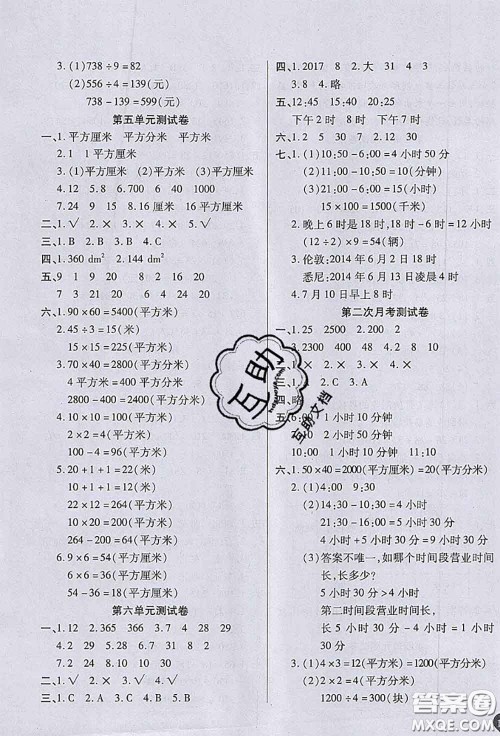 3. (1)738÷9=82
(2)556÷4=139(元)
738-139=599(元)
第五单元测试卷
一、1.平方厘米 平方分米 平方米
2.1 1平方厘米
3.(1)平方厘米 (2)平方厘米 (3)平方米
4.12 2.8 6.700 6 40 1000
7.24 9.8 15.9 8.16 10.16平方厘米
二、1.√ 2.× 3.× 4.× 5.√
三、1.B 2.A 3.B 4.C 5.B
四、1.360 dm² 2.144 dm²
五、9 1 20 8 20 2 20
7 3 21 20 4 24
六、1.90×60=5400(平方米)
2.45×30=1350(平方米)
15×15=225(平方米)
3.70×40=2800(平方厘米)
4平方厘米=400平方厘米
2800-400=2400(平方厘米)
4.10×10=100(平方米)
2×2=4(平方米)
100-4=96(平方米)
5.20+1+1=22(米)
10+1+1=12(米)
22×12=264(平方米)
20×10=200(平方米)
264-200=64(平方米)
6.9×6=54(平方厘米)
6×6=36(平方厘米)
54-36=18(平方厘米)
第六单元测试卷
一、1.12 2.365 366 3.7 4 28 29
4.2 29 5.28 6.31 7.2 8.3 31
7.24 9.30
二、1.√ 2.√ 3.√ 4.× 5.×
三、1.C 2.A 3.C 4.A 5.B
四、1.2017 8 2.大 31 4 3
3.8 4.略
五、12:45 15:40 20:25
下午2时 下午8时
六、1.× 2.× 3.√ 4.× 5.√
七、1.(1)10:50-6:00=4小时50分
(2)6:10-6:00=10(分钟)
(3)21:00-20:50=10(分钟)
15×100=1500(千米)
2.晚上6时是18时,18时-6时=12小时
(12÷2)×9=54(辆)
3.伦敦:2014年6月2日18时
悉尼:2014年6月3日凌晨4时
4.7月10日早上8时
第二次月考测试卷
一、1.25 2500 2.200 2
3.2300 400 48 4.8 10
二、1.× 2.× 3.× 4.×
三、1.A 2.C 3.A
四、略
五、6:00 1小时10分钟
10:00 1小时10分钟 11:10
六、1.50×40=2000(平方厘米)=20(平方米)
2.(1)4:30 9:00
(2)14:30-10:30=4小时
21:00-15:30=5小时30分
4小时+5小时30分=9小时30分
(3)答案不唯一,如哪个时间段营业时间
长,长多少?
5小时30分>4小时
第二时间段营业时间长,
长5小时30分-4小时=1小时
30分
3.(1)4×3=12(平方米)=1200(平方分米)
(2)2×2=4(平方分米)
1200÷4=300(块)
互助
互助文档
答案圈
MXQE.COM